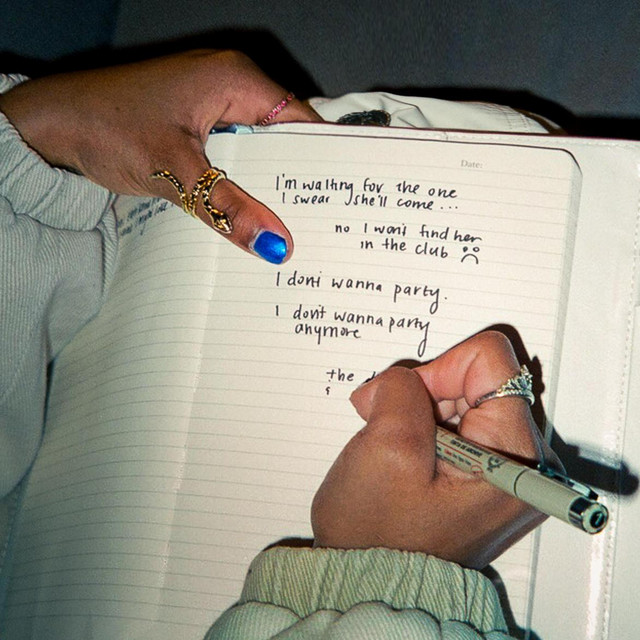 Date:
I'm waiting for the one
I swear she'll come ...
no I won't find her
in the club
I don't wanna party.
I don't wanna party
anymore
the